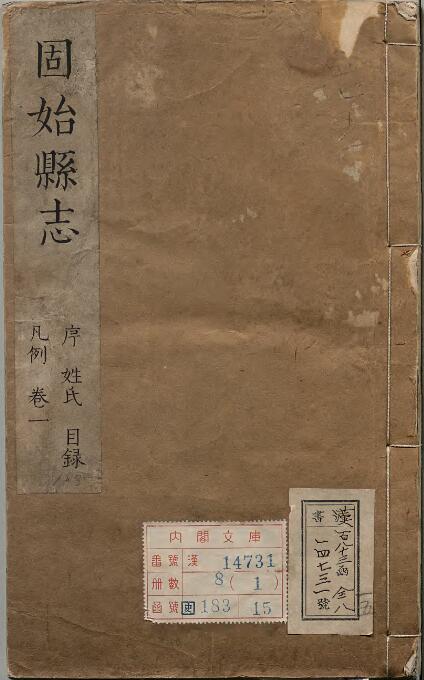 固始縣志
序 姓氏 目録
凡例 卷一
內閣文庫
番號 漢 14731
册數 8(1)
函號 史 183 15
漢書
百八十三函 全八
一四七三一號